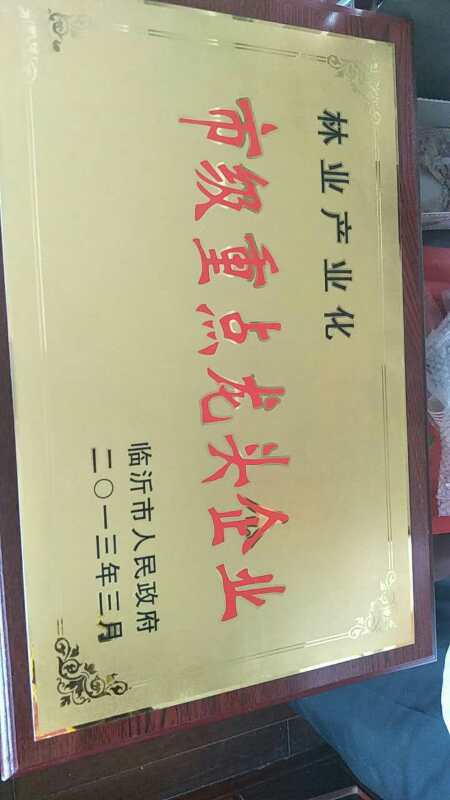 林业产业化
市级重点龙头企业
临沂市人民政府
二〇一三年三月